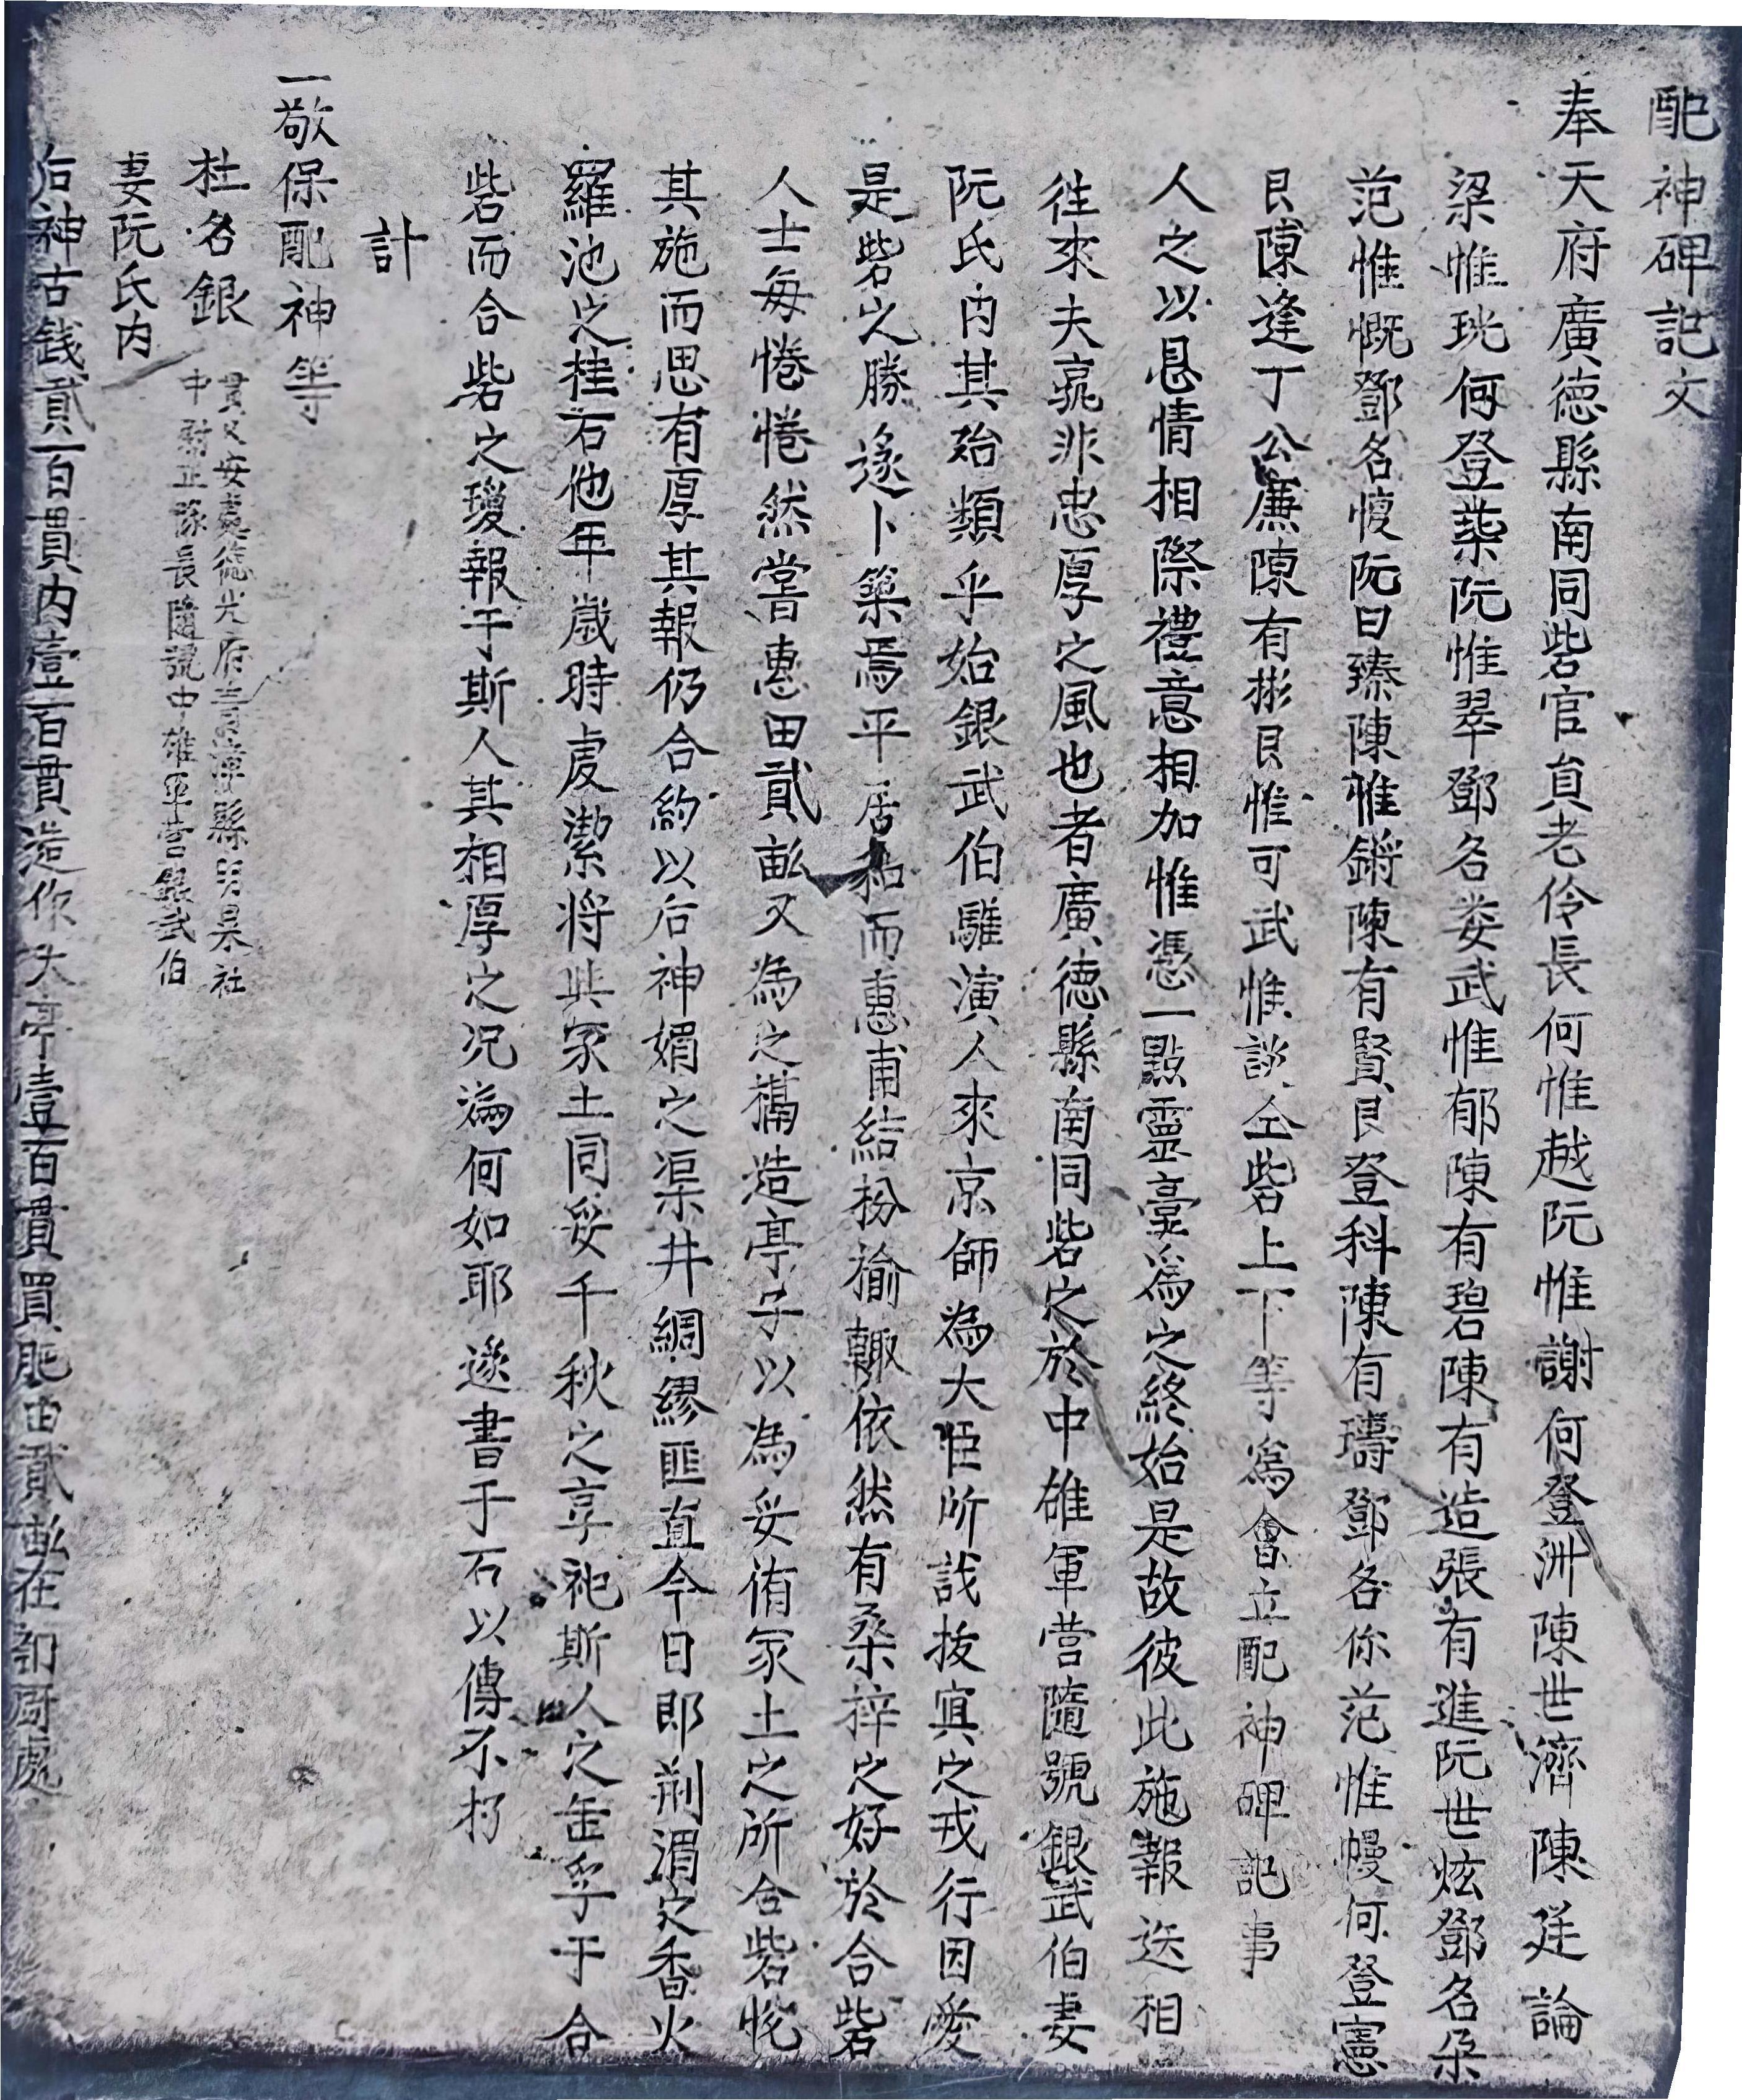 配神碑記文
奉天府廣德縣南同砦官員老伶長何惟越阮惟謝何登洲陳世濟陳廷論
梁惟珖何登榮阮惟翠鄧名娄武惟郁陳有碧陳有造張有進阮世炫鄧名朵
范惟慨鄧名愎阮曰臻陳惟鏘陳有賢艮登科陳有璹鄧各你范惟幔何登憲
艮陳逢丁公廉陳有彬艮惟可武惟談仝砦上下等為會立配神碑記事
人之以恳情相際禮意相加惟憑一點靈臺爲之終始是故彼此施報迭相
徃來夫孰非忠厚之風也者廣德縣南同砦之於中雄軍营隨號銀武伯妻
阮氏內其殆類乎始銀武伯驩演人來京師為大臣所哉抜寘之戎行因愛
是砦之勝遂卜築焉平居和而惠甫結枌榆輙依然有桑梓之好於合砦
人士每惓惓然嘗惠田貳畝又為之搆造亭子以為妥侑冢土之所合砦恍
其施而思有厚其報仍合約以后神媚之渠井綢繆匪直今日即荊湄定香火
羅池之桂石他年歲時虔潔将與冢土同妥千秋之享祀斯人之缶孚于合
砦而合砦之瓊報于斯人其相厚之况為何如耶遂書于石以傳不朽
計
一敬保配神等
杜名銀 貫乂安處德光府 縣 社
中尉正隊長隨號中雄軍营銀武伯
妻阮氏内
后神古銭貳百貫内壹百貫造作大亭壹百貫買肥田貳畝在 厨處